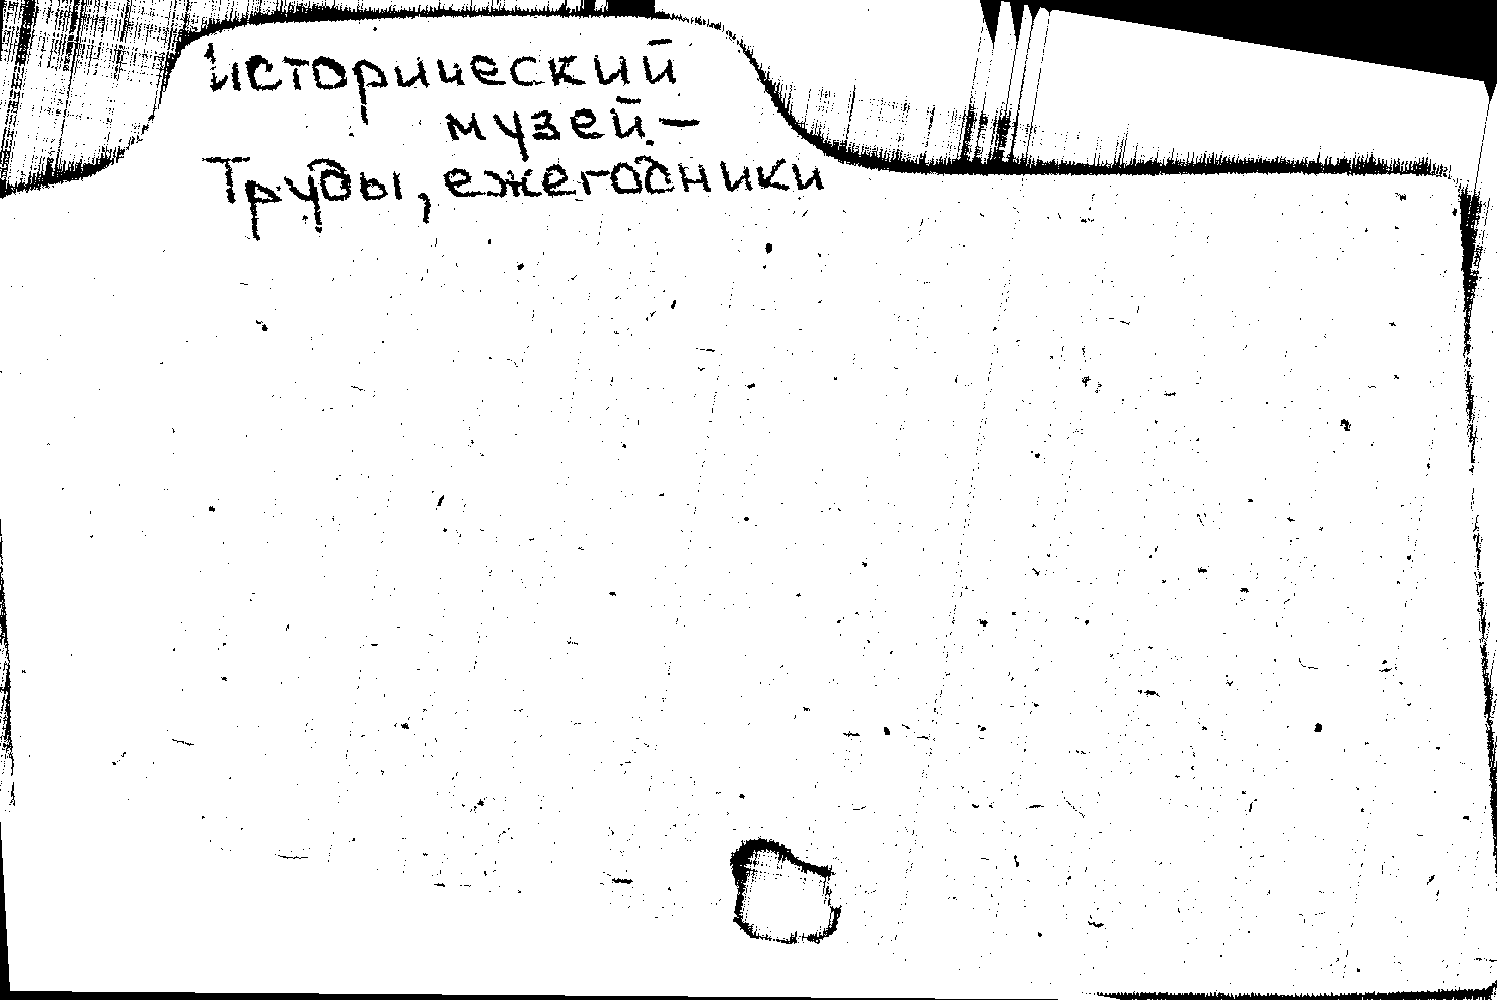 Исторический
музей —
Труды, ежегодники